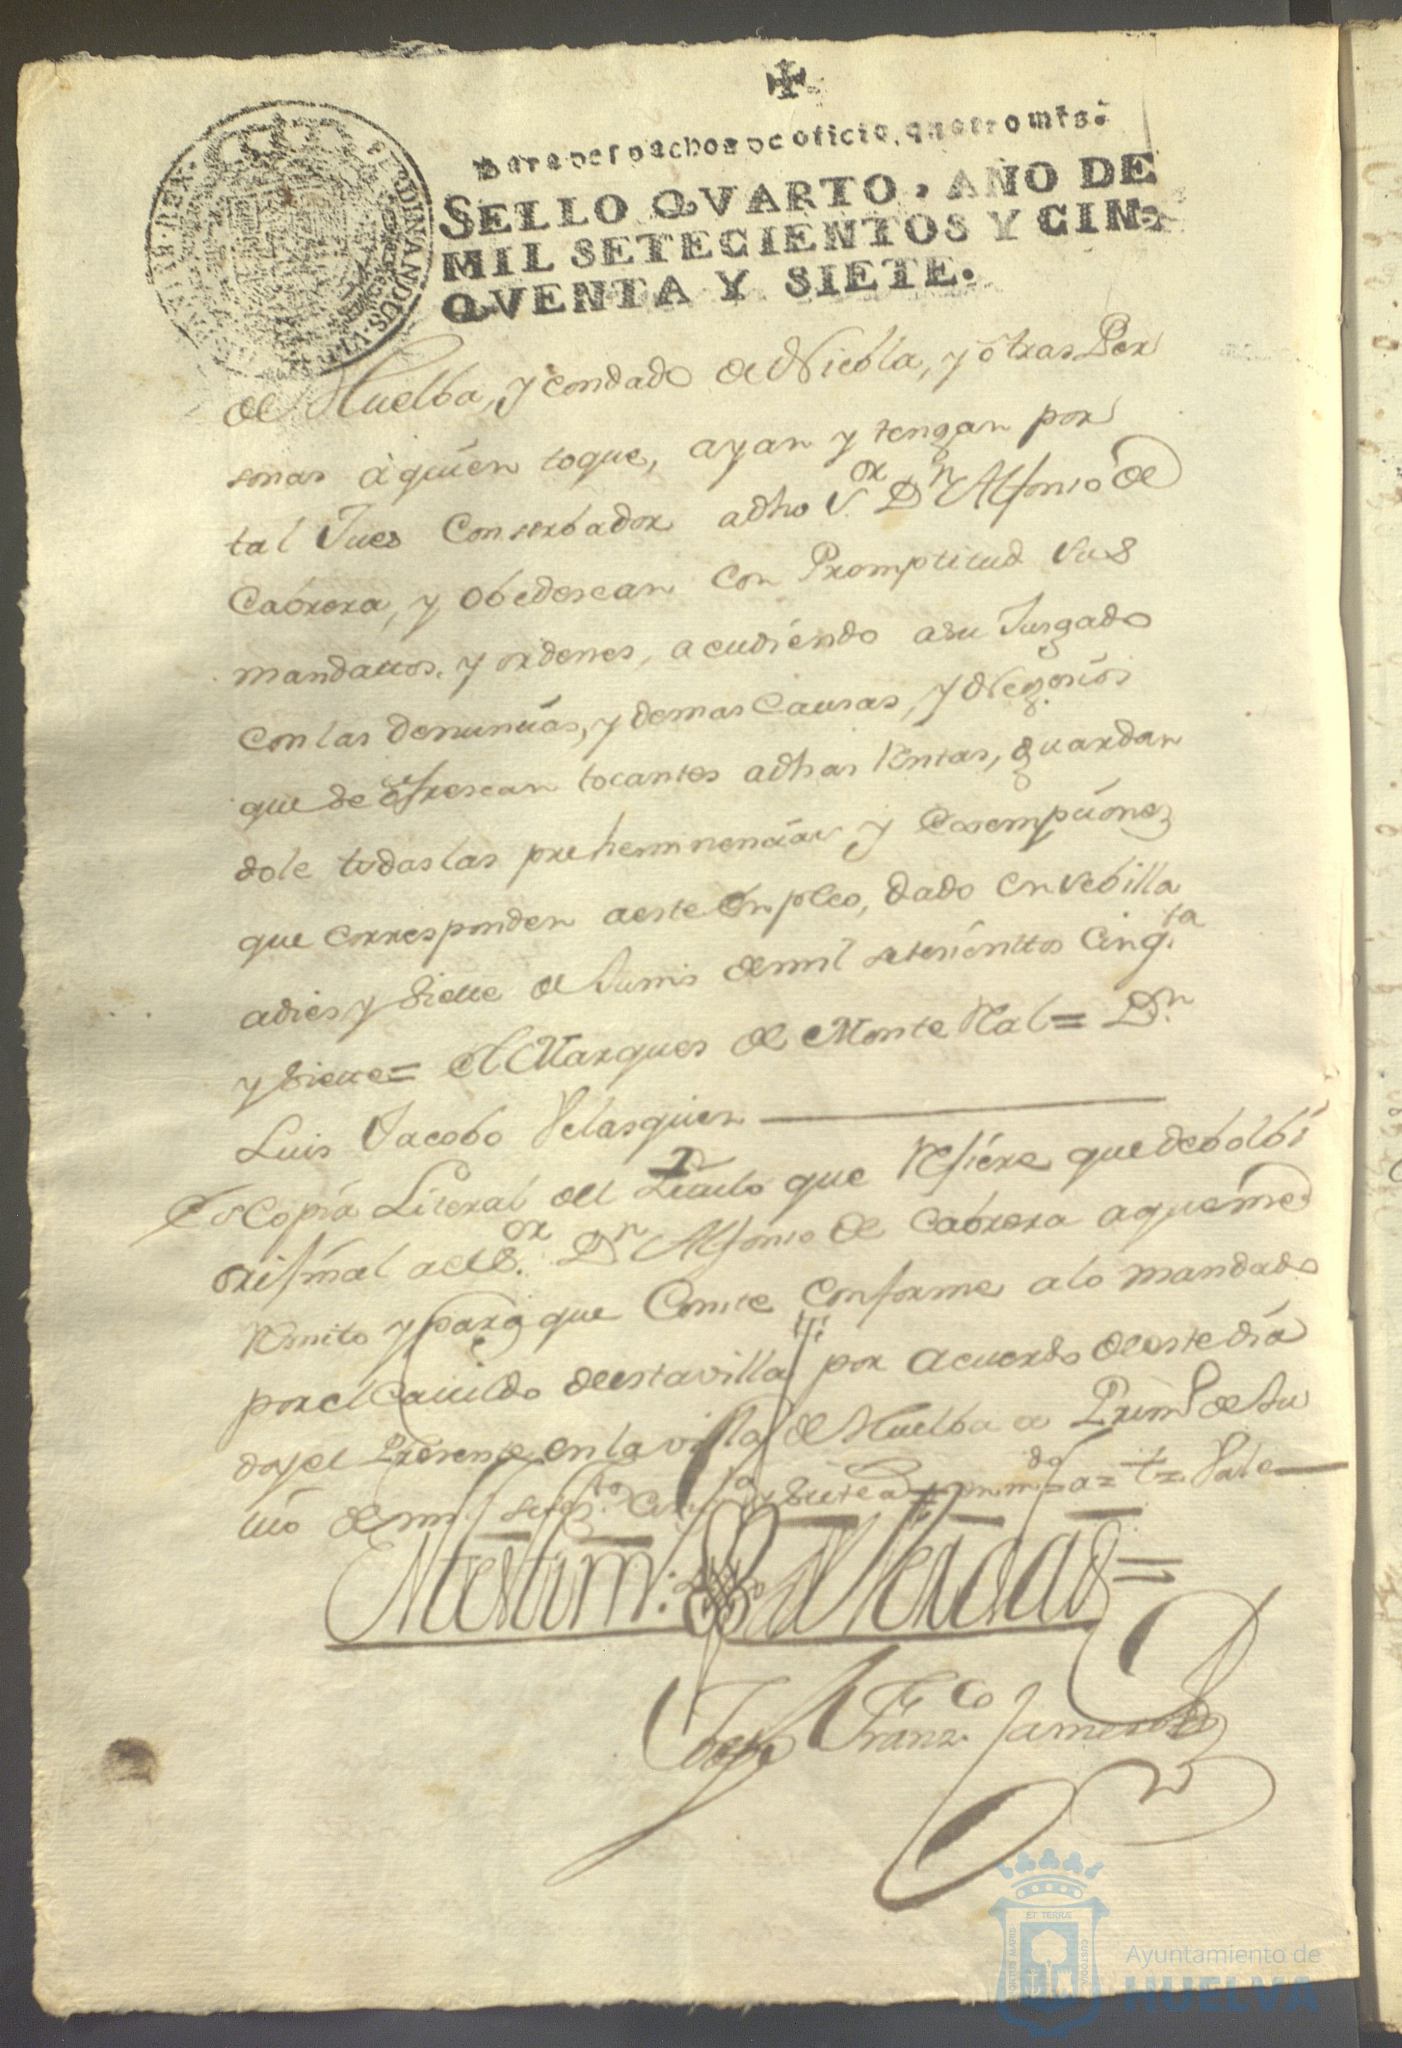 Para despachos de oficio, quatro mrs.
SELLO QVARTO, AÑO DE
MIL SETECIENTOS Y CIN-
QVENTA Y SIETE.
de Huelba, y condado de Niebla, y otras Per
sonas à quien toque, ayan y tengan por
tal Jues Conserbador adho S.or Dn Alfonso de
Cabrera, y obedescan con Promptitud sus
mandattos, y ordenes, acudiendo a su Jusgado
con las denuncias, y demas Causas, y Negosios
que se ofrescan tocantes adhas Rentas, guardan
dole todas las preheminencias y Exsempciones
que corresponden a este Empleo, dado en Sebilla
a dies y Siette de Junio de mil setesienttos Cinq.ta
y Siette = el Marques de Monte Real = Dn.
Luis Jacobo Velasques
Es Copia Literal del Titulo que Refiere que debolbi
orijinal a el S.or Dn Alfonso de Cabrera a que me
Remito y para que Conste conforme a lo mandado
por el Cavildo de esta villa por acuerdo de este dia
doy el Presente en la villa de Huelba a Prim.o de Ju
lio de mil setes.tos Cinq.ta y Siette a = Vale
En testim.o de Verdad =
Joseph Franz.co
FERDINANDUS. VI.
HISPANIAR. REX.
PORTUS MARIS
ET TERRÆ
CUSTODIA
Ayuntamiento de
HUELVA